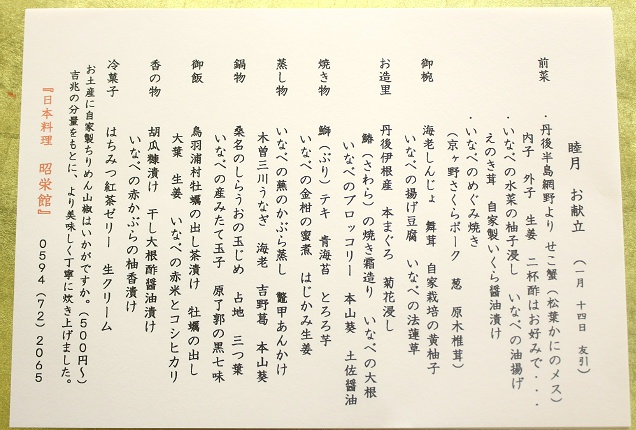 睦月　お献立　（一月　十四日　友引）
前菜　・丹後半島網野より　せこ蟹（松葉かにのメス）
内子　外子　生姜　二杯酢はお好みで・・・・
・いなべの水菜の柚子浸し　いなべの油揚げ
えのき茸　自家製いくら醤油漬け
・いなべのめぐみ焼き
（京ヶ野さくらポーク　葱　原木椎茸）
御椀　海老しんじょ　舞茸　自家栽培の黄柚子
いなべの揚げ豆腐　いなべの法蓮草
お造里　丹後伊根産　本まぐろ　菊花浸し
鰆（さわら）の焼き霜造り　いなべの大根
いなべのブロッコリー　本山葵　土佐醤油
焼き物　鰤（ぶり）テキ　青海苔　とろろ芋
いなべの金柑の蜜煮　はじかみ生姜
蒸し物　いなべの蕪のかぶら蒸し　鼈甲あんかけ
木曽三川うなぎ　海老　吉野葛　本山葵
鍋物　桑名のしらうおの玉じめ　占地　三つ葉
いなべの産みたて玉子　原了郭の黒七味
御飯　鳥羽浦村牡蠣の出し茶漬け　牡蠣の出し
大葉　生姜　いなべの赤米とコシヒカリ
香の物　胡瓜糠漬け　干し大根酢醤油漬け
いなべの赤かぶらの柚香漬け
冷菓子　はちみつ紅茶ゼリー　生クリーム
お土産に自家製ちりめん山椒はいかがですか。（５００円～）
吉兆の分量をもとに、より美味しく丁寧に炊き上げました。
『日本料理　昭栄館』　０５９４（７２）２０６５